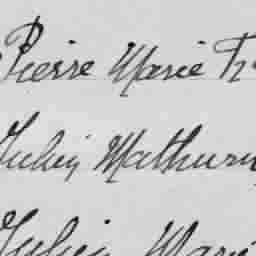 Pierre Marie
Julien Mathurin
Julien Marie